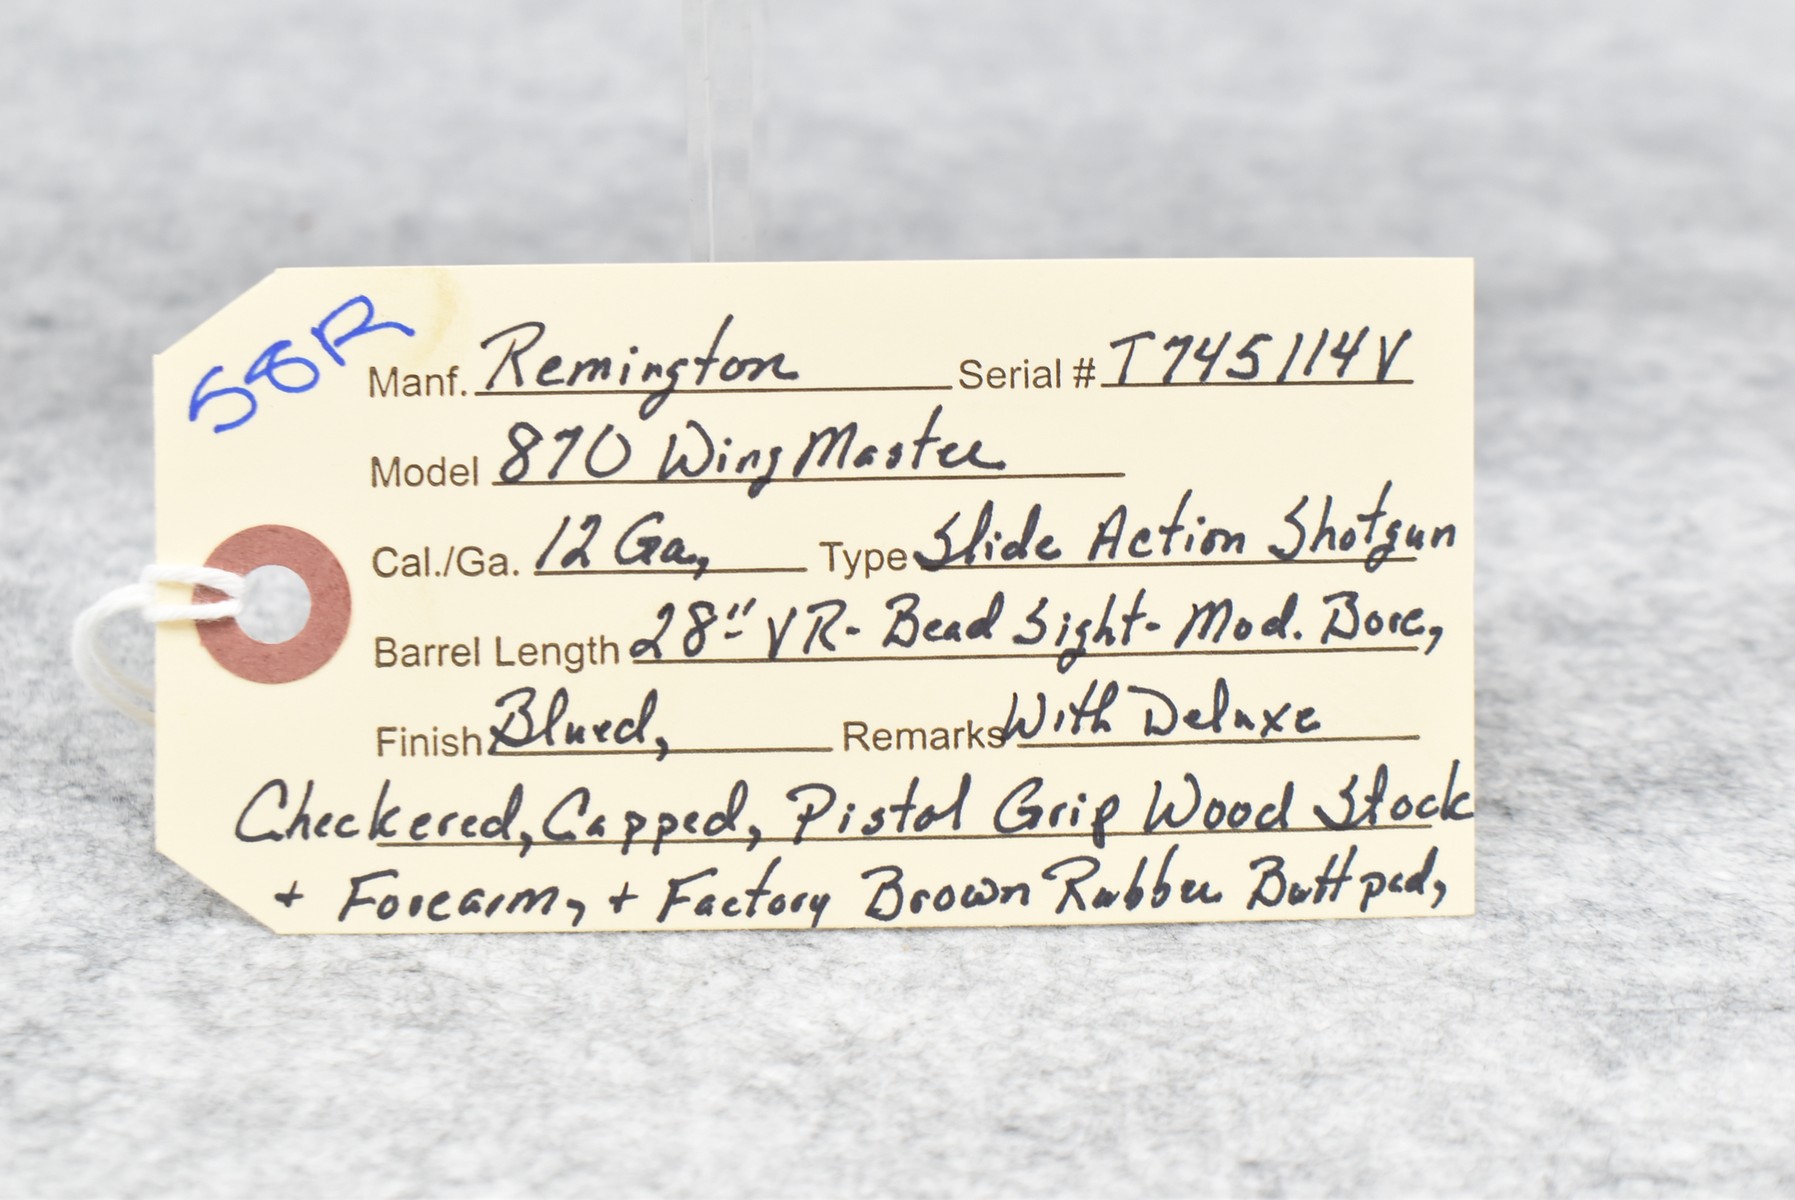 58R
Manf. Remington Serial # T745114V
Model 870 WingMaster
Cal./Ga. 12 Ga, Type Slide Action Shotgun
Barrel Length 28" VR- Bead Sight- Mod. Bore,
Finish Blued, Remarks With Deluxe
Checkered, Capped, Pistol Grip Wood Stock
+ Forearm, + Factory Brown Rubber Buttpad,